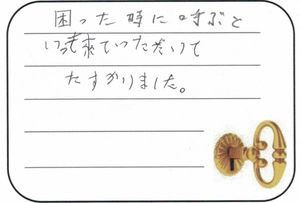 困った時に呼ぶと
いつも来ていただいて
たすかりました。